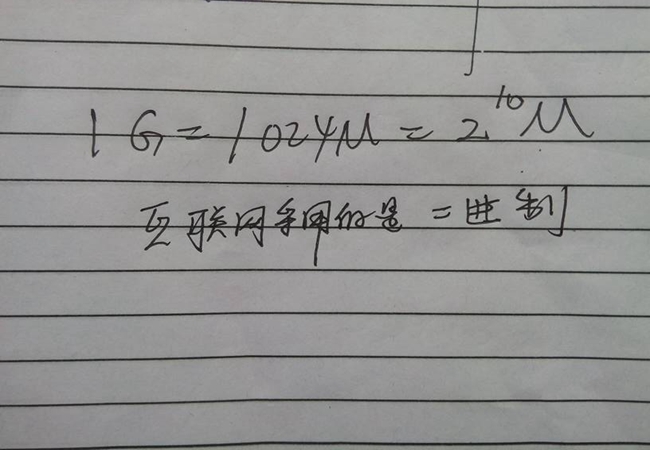 1G=1024M=2¹⁰M
互联网采用的是二进制